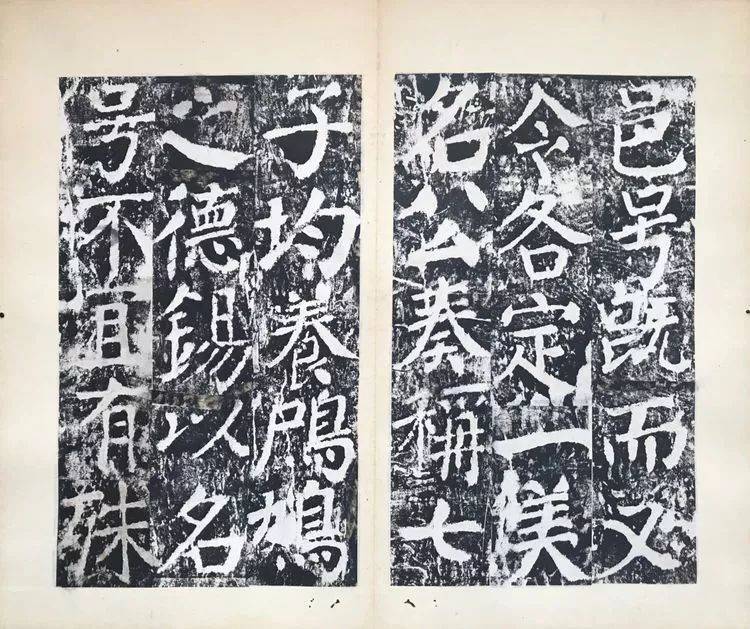 邑号既而又
令各定一美
名公奏稱七
子均養鳲鳩
之德錫以名
号不宜有殊